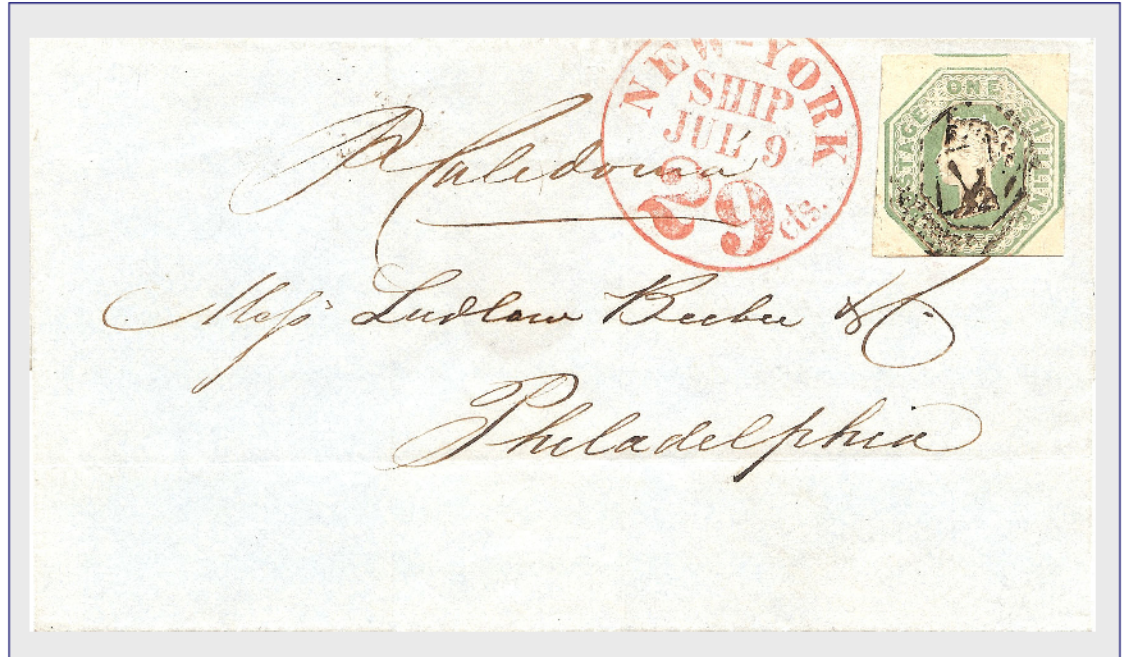 NEW-YORK
SHIP
JUL 9
29 cts.
POSTAGE ONE SHILLING
Pr Caledonia
Messrs Ludlow Beebee & Co.
Philadelphia